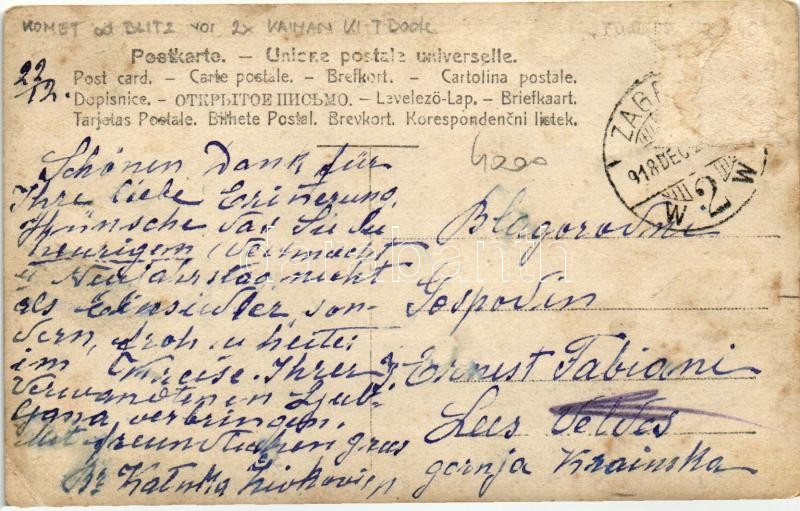 KOMET od BLITZ vor 2x KAIMAN
Postkarte. – Unione postale universelle.
Post card. – Carte postale. – Brefkort. – Cartolina postale.
Dopisnice. – ОТКРЫТОЕ ПИСЬМО. – Levelező-Lap. – Briefkaart.
Tarjetas Postale. Bilhete Postal. Brevkort. Korespondenční lístek.
22
12.
4000
ZAGR
918 DEC 2
M 2 M
Schönen Dank für
Ihre liebe Erinerung.
Wünsche das Sie die
heurigen Weihnacht
u Neujahrstag nicht
als Einsiedler son-
dern, froh u heiter
im Kreise Ihrer
Verwandten in Ljub-
ljana verbringen.
Mit freundlichen grus
Katinka
Blagorodni
Gospodin
Ernest Fabiani
Lees Veldes
gornja Krainska
darabanth